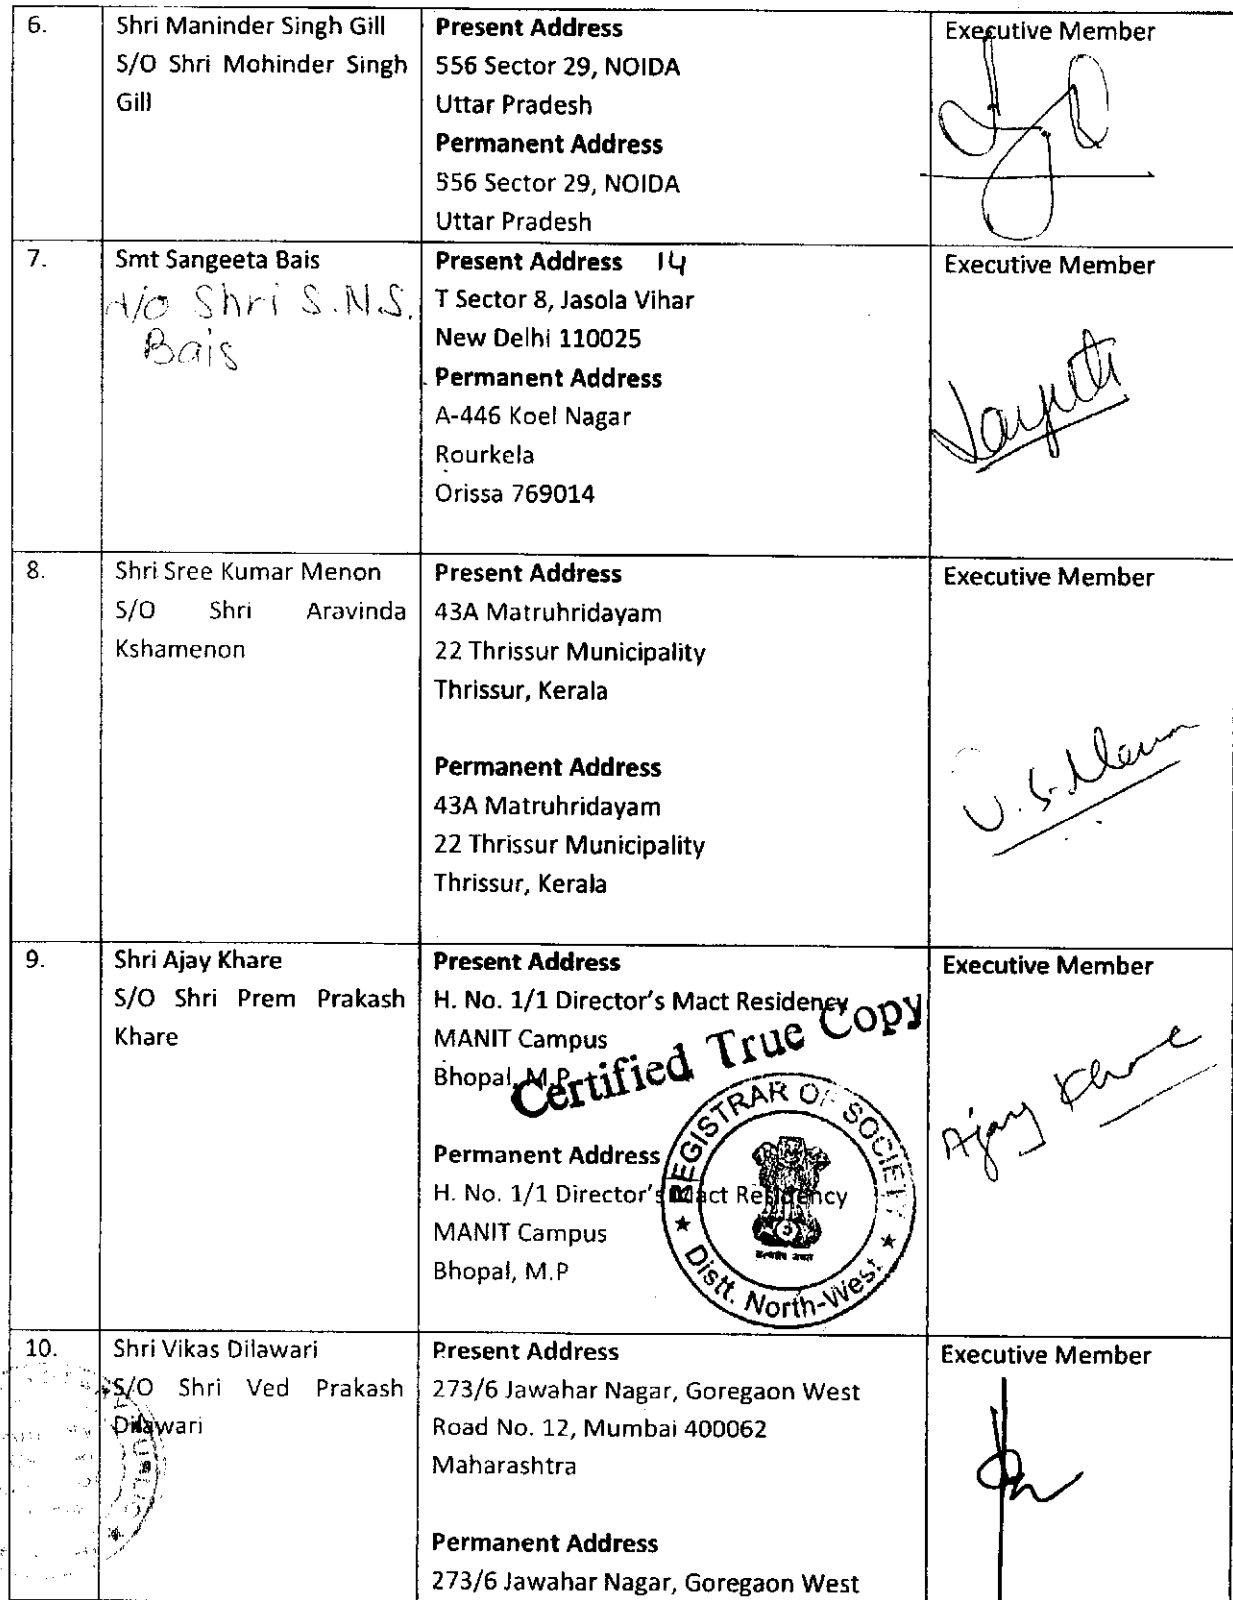 6.
Shri Maninder Singh Gill
S/O Shri Mohinder Singh
Gill
Present Address
556 Sector 29, NOIDA
Uttar Pradesh
Permanent Address
556 Sector 29, NOIDA
Uttar Pradesh
Executive Member
7.
Smt Sangeeta Bais
Shri S.N.S.
Bais
Present Address 14
T Sector 8, Jasola Vihar
New Delhi 110025
Permanent Address
A-446 Koel Nagar
Rourkela
Orissa 769014
Executive Member
8.
Shri Sree Kumar Menon
S/O Shri Aravinda
Kshamenon
Present Address
43A Matruhridayam
22 Thrissur Municipality
Thrissur, Kerala
Permanent Address
43A Matruhridayam
22 Thrissur Municipality
Thrissur, Kerala
Executive Member
9.
Shri Ajay Khare
S/O Shri Prem Prakash
Khare
Present Address
H. No. 1/1 Director's Mact Residency
MANIT Campus
Bhopal, M.P
Permanent Address
H. No. 1/1 Director's Mact Residency
MANIT Campus
Bhopal, M.P
Certified True Copy
REGISTRAR OF SOCIETY
★ Distt. North-West ★
सत्यमेव जयते
Executive Member
Ajay Khare
10.
Shri Vikas Dilawari
S/O Shri Ved Prakash
Dilawari
Present Address
273/6 Jawahar Nagar, Goregaon West
Road No. 12, Mumbai 400062
Maharashtra
Permanent Address
273/6 Jawahar Nagar, Goregaon West
Executive Member